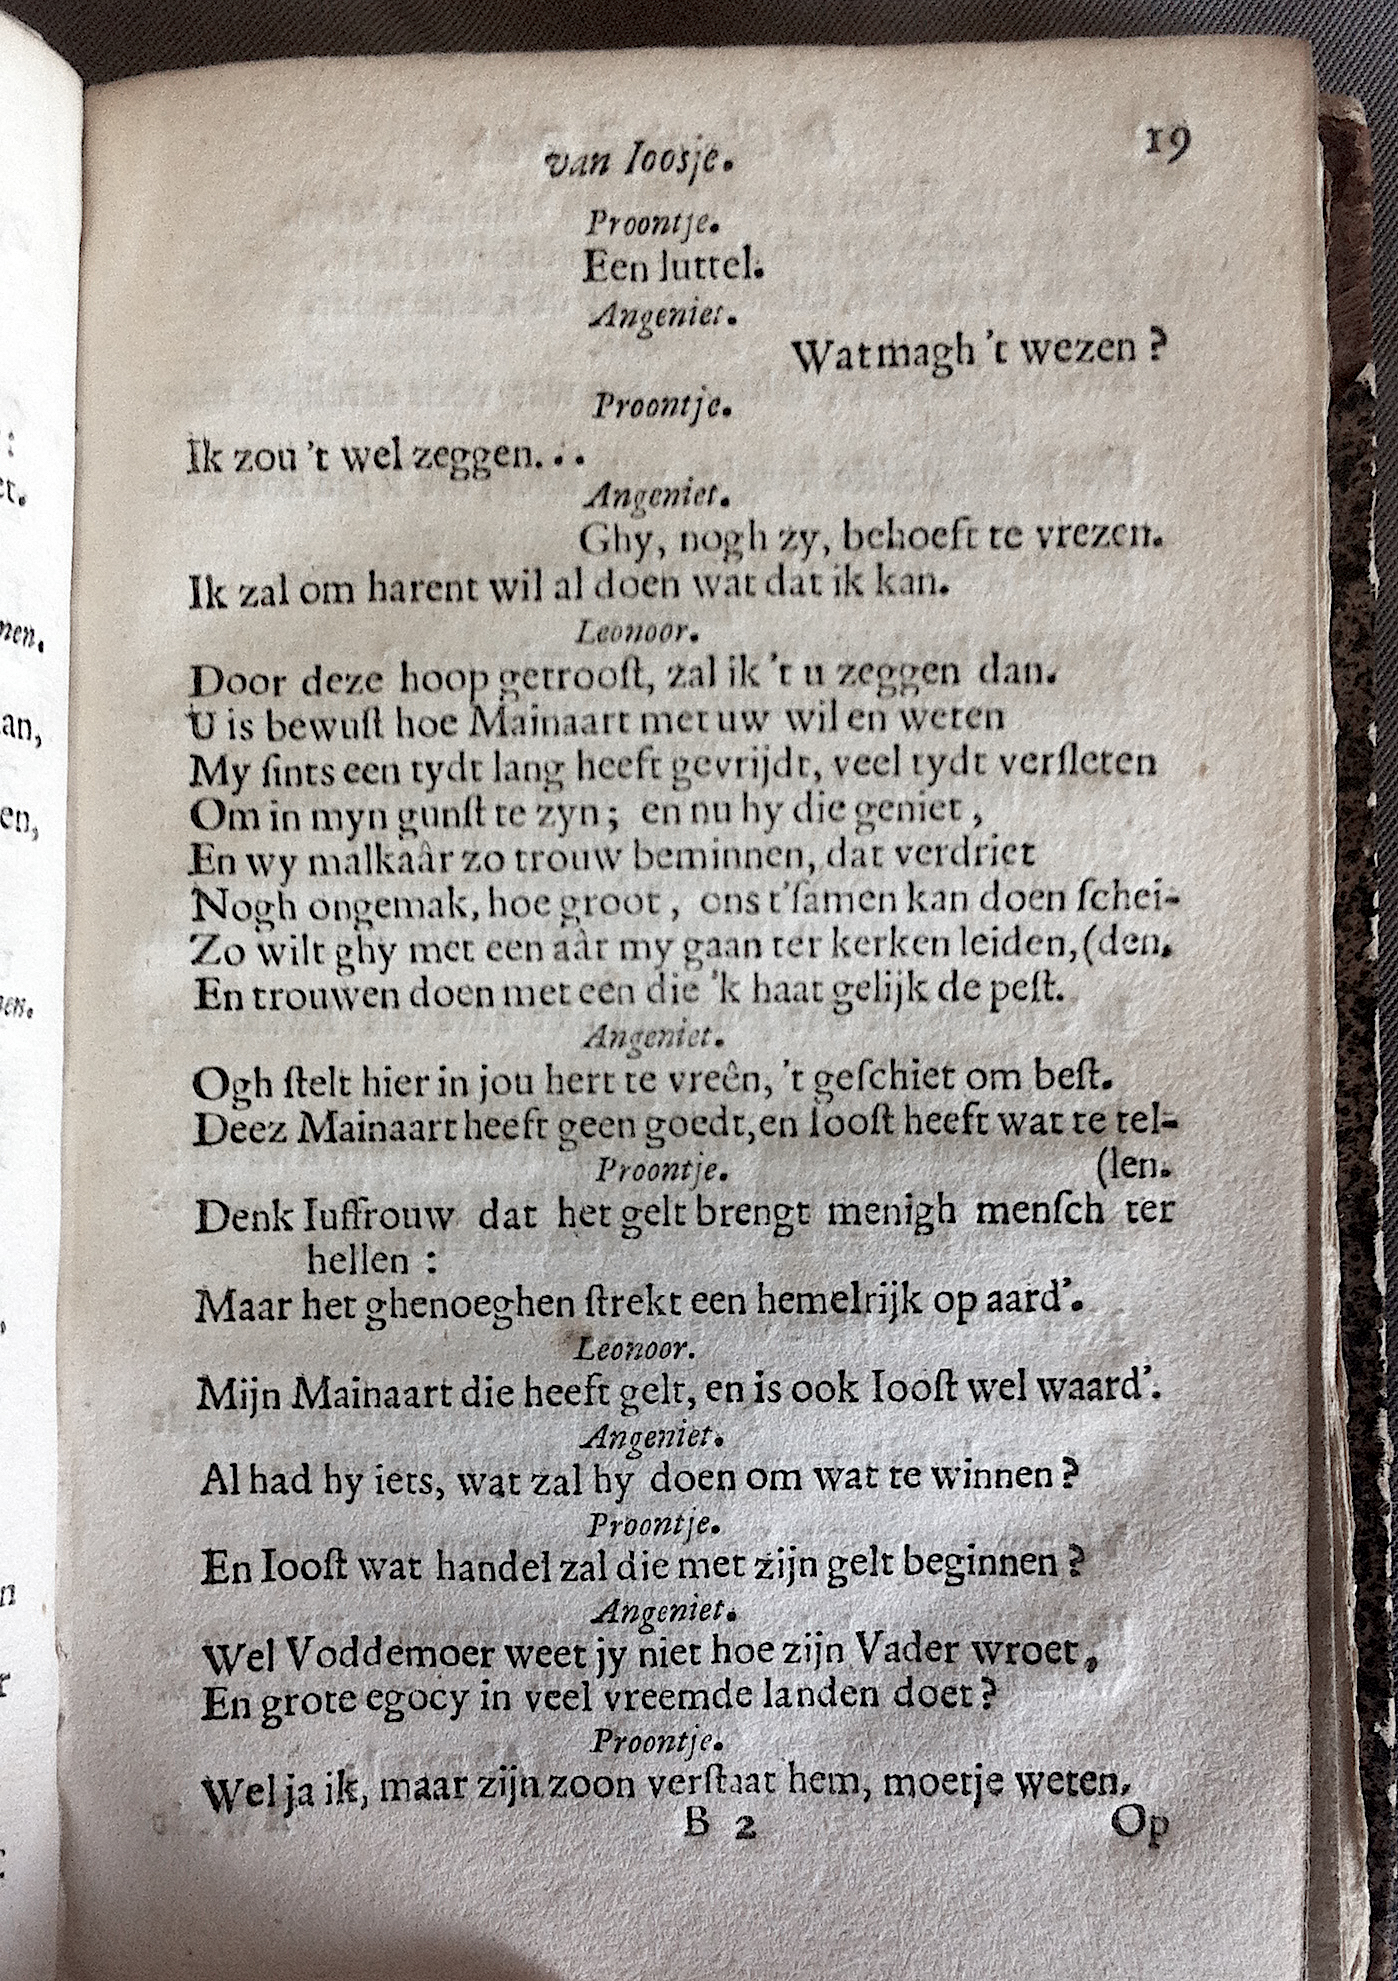 van Ioosje.
19
Proontje.
Een luttel.
Angeniet.
Wat magh 't wezen ?
Proontje.
Ik zou 't wel zeggen. . .
Angeniet.
Ghy, nogh zy, behoeft te vrezen.
Ik zal om harent wil al doen wat dat ik kan.
Leonoor.
Door deze hoop getrooſt, zal ik 't u zeggen dan.
U is bewuſt hoe Mainaart met uw wil en weten
My ſints een tydt lang heeft gevrijdt, veel tydt verſleten
Om in myn gunſt te zyn ; en nu hy die geniet ,
En wy malkaâr zo trouw beminnen, dat verdriet
Nogh ongemak, hoe groot , ons t'ſamen kan doen ſchei-
Zo wilt ghy met een aâr my gaan ter kerken leiden, (den.
En trouwen doen met een die 'k haat gelijk de peſt.
Angeniet.
Ogh ſtelt hier in jou hert te vreên, 't geſchiet om beſt.
Deez Mainaart heeft geen goedt, en Iooſt heeft wat te tel-
Proontje. (len.
Denk Iuffrouw dat het gelt brengt menigh menſch ter
hellen :
Maar het ghenoeghen ſtrekt een hemelrijk op aard'.
Leonoor.
Mijn Mainaart die heeft gelt, en is ook Iooſt wel waard'.
Angeniet.
Al had hy iets, wat zal hy doen om wat te winnen ?
Proontje.
En Iooſt wat handel zal die met zijn gelt beginnen ?
Angeniet.
Wel Voddemoer weet jy niet hoe zijn Vader wroet,
En grote egocy in veel vreemde landen doet ?
Proontje.
Wel ja ik, maar zijn zoon verſtaat hem, moetje weten.
B 2
Op